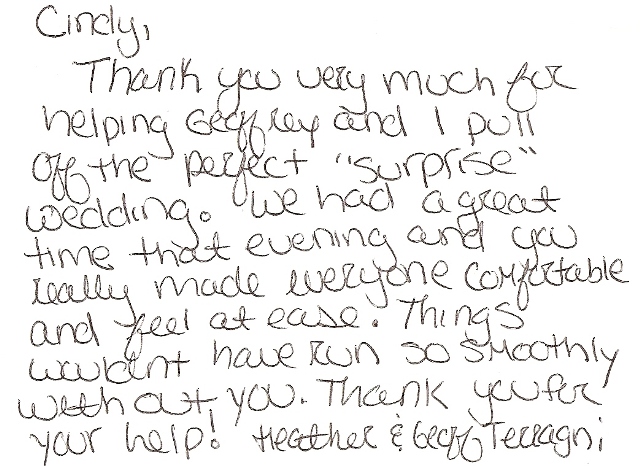 Cindy,
Thank you very much for
helping Geoffrey and I pull
off the perfect "surprise"
wedding. We had a great
time that evening and you
really made everyone comfortable
and feel at ease. Things
wouldnt have run so smoothly
without you. Thank you for
your help! Heather & Geoff Terragni